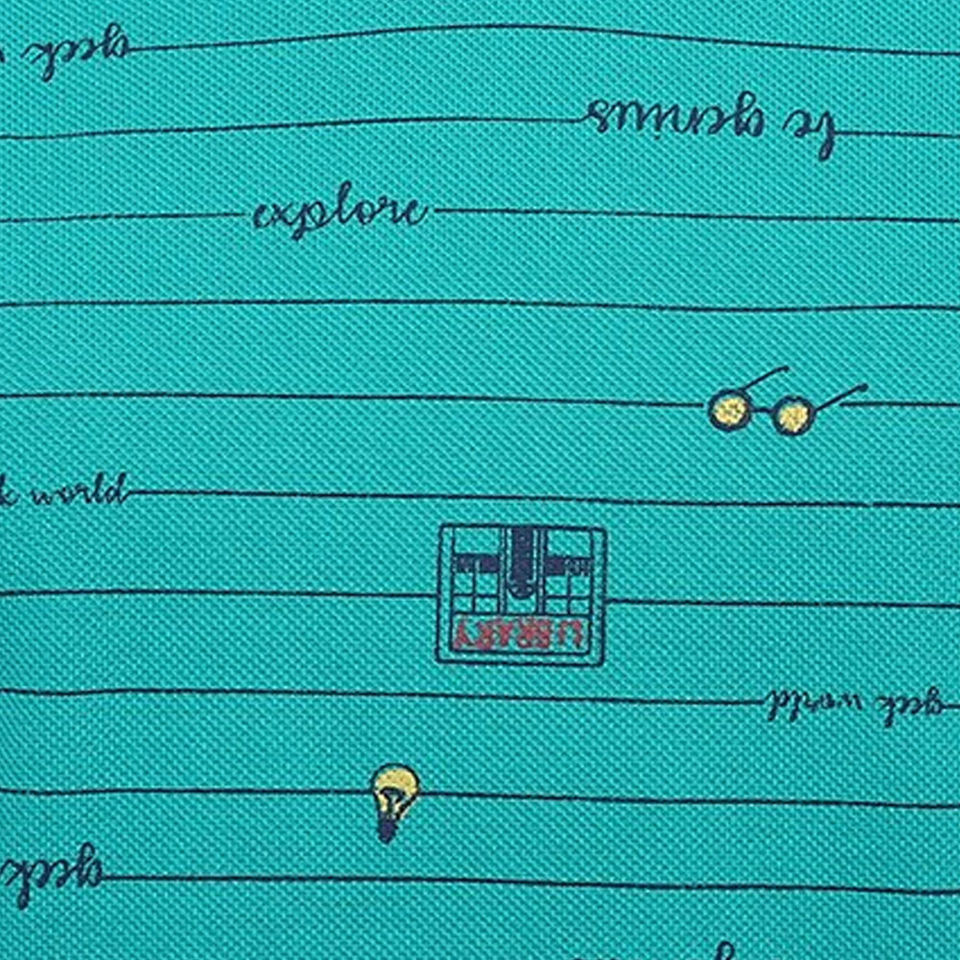 geek
be genius
explore
world
LIBRARY
geek world
geek